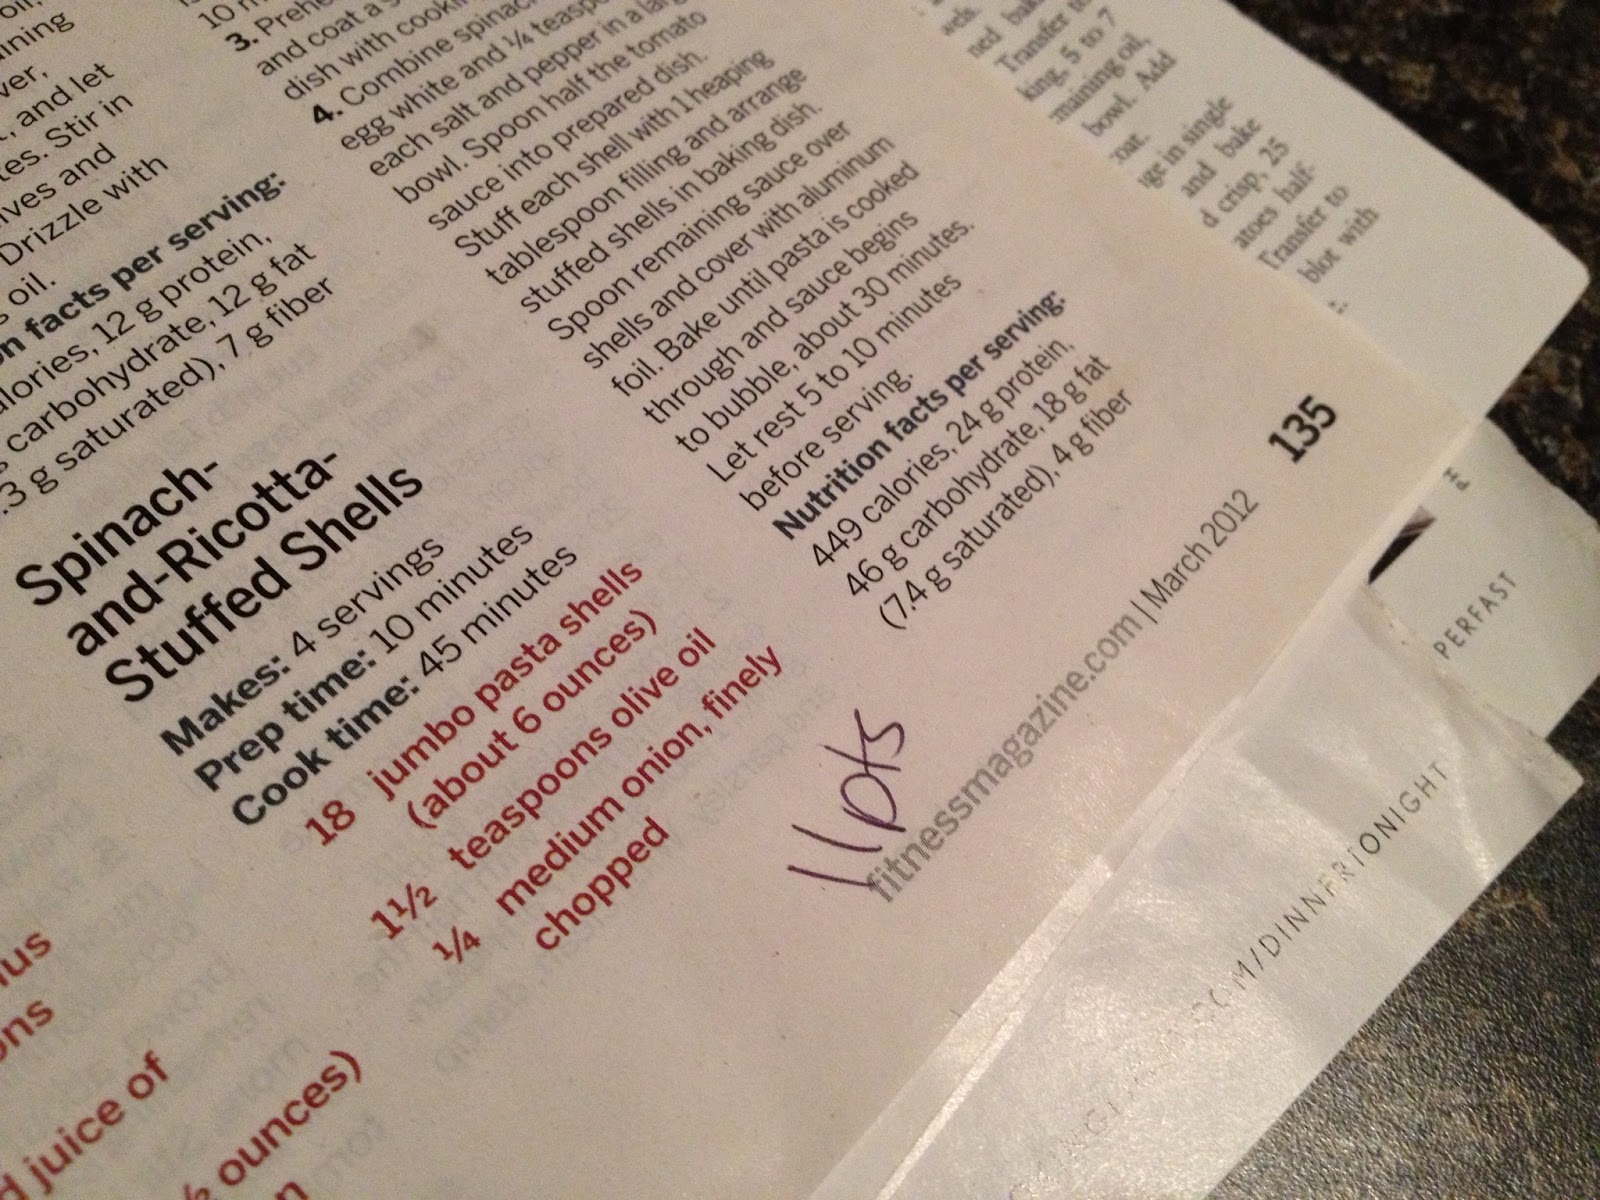 ining
ver,
, and let
tes. Stir in
ives and
Drizzle with
oil.
n facts per serving:
alories, 12 g protein,
carbohydrate, 12 g fat
.3 g saturated), 7 g fiber
Spinach-
and-Ricotta-
Stuffed Shells
Makes: 4 servings
Prep time: 10 minutes
Cook time: 45 minutes
18 jumbo pasta shells
(about 6 ounces)
1½ teaspoons olive oil
¼ medium onion, finely
chopped
juice of
ounces)
10 m
3. Prehe
and coat a 9
dish with cookin
4. Combine spinac
egg white and ¼ teaspo
each salt and pepper in a larg
bowl. Spoon half the tomato
sauce into prepared dish.
Stuff each shell with 1 heaping
tablespoon filling and arrange
stuffed shells in baking dish.
Spoon remaining sauce over
shells and cover with aluminum
foil. Bake until pasta is cooked
through and sauce begins
to bubble, about 30 minutes.
Let rest 5 to 10 minutes
before serving.
Nutrition facts per serving:
449 calories, 24 g protein,
46 g carbohydrate, 18 g fat
(7.4 g saturated), 4 g fiber
11pts
fitnessmagazine.com | March 2012 135
ned bak
Transfer to
king, 5 to 7
maining oil,
bowl. Add
oat.
ge in single
and bake
d crisp, 25
atoes half-
Transfer to
blot with
PERFAST
COM/DINNERTONIGHT